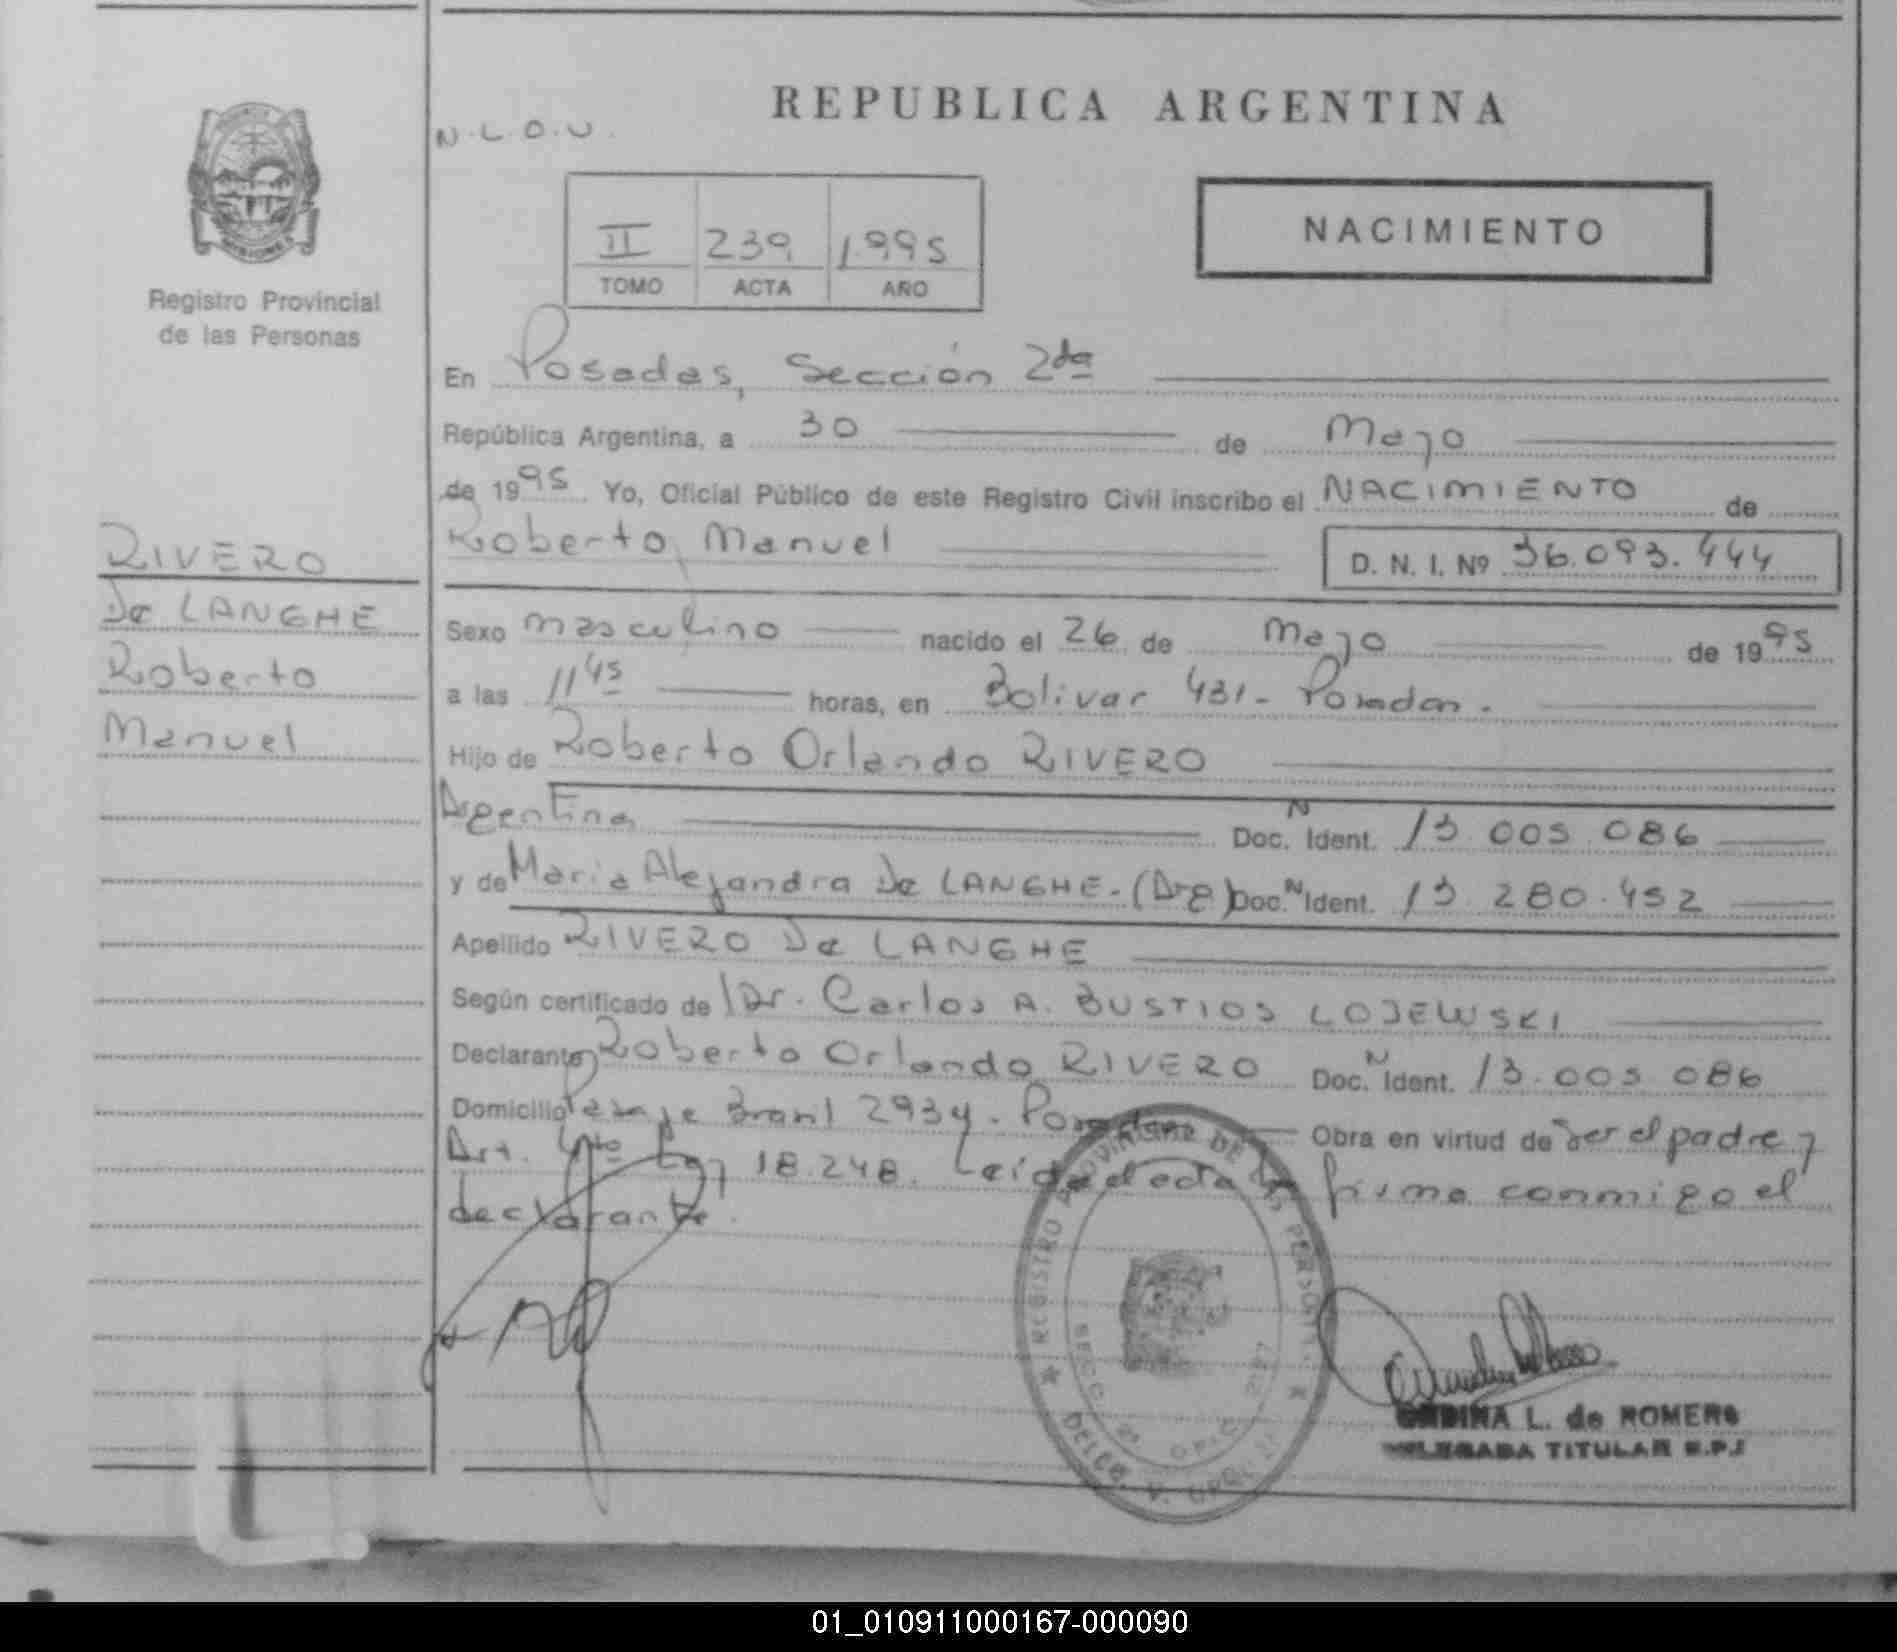 REPUBLICA ARGENTINA
N.L.O.U.
NACIMIENTO
II 239 1.995
TOMO ACTA AÑO
MISIONES
Registro Provincial
de las Personas
En Posadas, Sección 2da
República Argentina, a 30 de Mayo
de 1995 Yo, Oficial Público de este Registro Civil inscribo el NACIMIENTO de
Roberto Manuel D. N. I. Nº 36.093.444
RIVERO
De LANGHE
Roberto
Manuel
Sexo masculino nacido el 26 de Mayo de 1995
a las 11 45 horas, en Bolivar 431 - Posadas.
Hijo de Roberto Orlando RIVERO
Argentina Doc. N Ident. 13.005.086
y de Maria Alejandra De LANGHE. (Arg) Doc. N Ident. 13.280.452
Apellido RIVERO De LANGHE
Según certificado de Dr. Carlos A. BUSTIOS LOJEWSKI
Declarante Roberto Orlando RIVERO Doc. N Ident. 13.005.086
Domicilio Pasaje Brasil 2934. Posadas Obra en virtud de ser el padre y
Art. 4to Ley 18.248. Leida el acta la firma conmigo el
declarante.
REGISTRO PROVINCIAL DE LAS PERSONAS
L. de ROMERO
DELEGADA TITULAR R.P.P
01_010911000167-000090